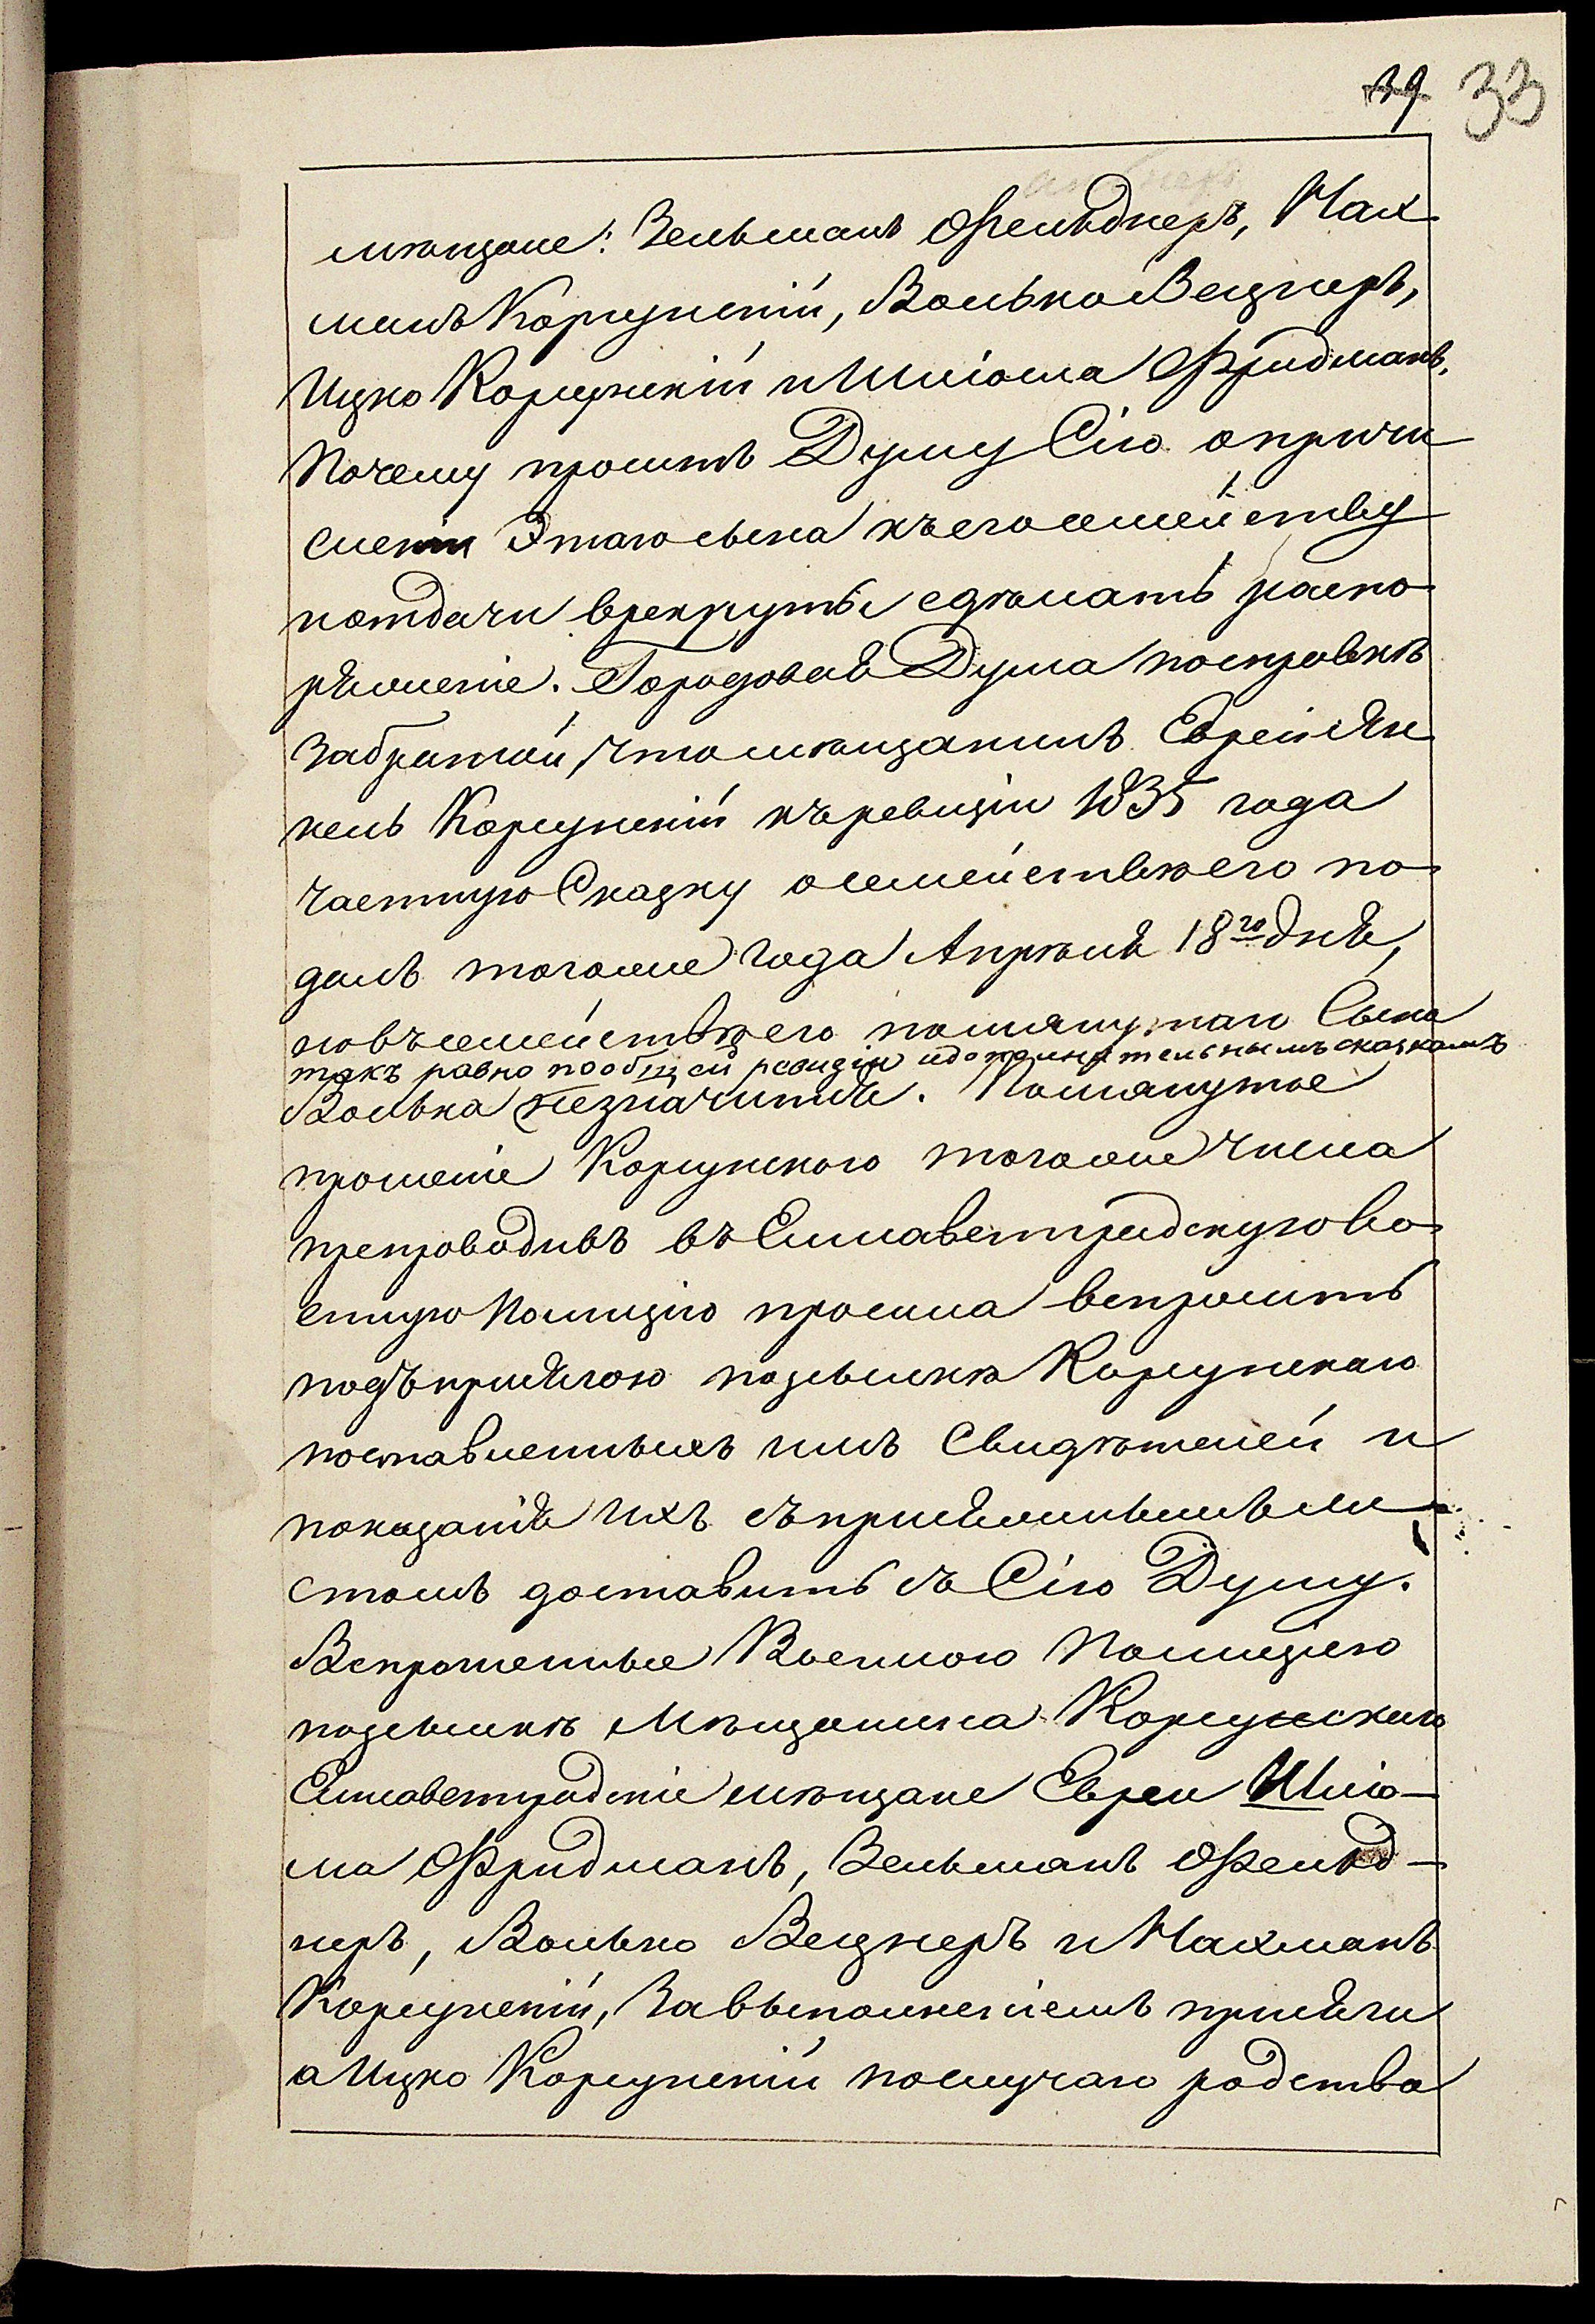 39 33
мѣщане: Зельманъ Фельднеръ, Нах
манъ Корсунскій, Волько Вецнеръ,
Ицко Корсунскій и Шліома Фридманъ,
Почему проситъ Думу Сію о причи
сленіи Этаго сына къ его семейству
и отдачи в рекруты сдѣлать распо
ряженіе. Городовая Дума по справкѣ
забратой, что мѣщанинъ Еврей Ян
кель Корсунскій къ ревизіи 1835 года
частную Сказку о семействѣ его по
далъ того же года Апрѣля 18го дня,
но въ семействѣ его помянутаго Сына
такъ равно по общей ревизіи и дополнительнымъ сказкамъ
Волька незначится. Помянутое
прошеніе Корсунского того же числа
препроводивъ въ Елисаветградскую Во
енную Полицію просила вспросить
подъ присягою по ссылкѣ Корсунскаго
поставленныхъ имъ Свидѣтелей и
показанія ихъ съ присяжнымъ ли
стомъ доставить въ Сію Думу.
Вспрошенные Военною Полиціею
по ссылкѣ Мѣщанина Корсунскаго
Елисаветградскіе мѣщане Евреи Шліо-
ма Фридманъ, Зельманъ Фельд-
неръ, Волько Вецнеръ и Нахманъ
Корсунскій, За выполненіемъ присяги
а Ицко Корсунскій по случаю родства